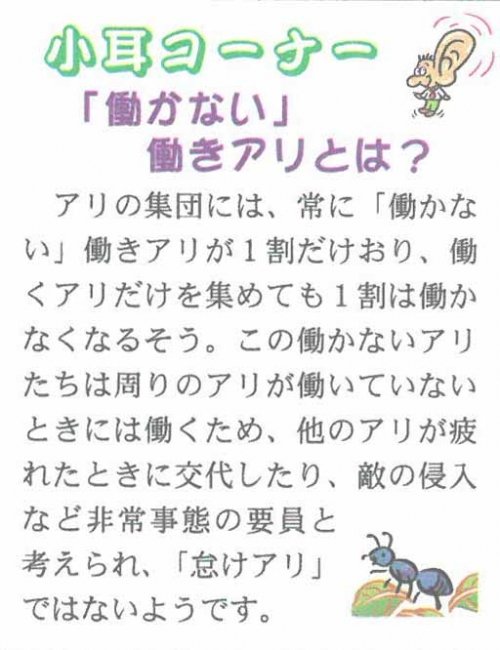 小耳コーナー
「働かない」
働きアリとは？
アリの集団には、常に「働かな
い」働きアリが１割だけおり、働
くアリだけを集めても１割は働か
なくなるそう。この働かないアリ
たちは周りのアリが働いていない
ときには働くため、他のアリが疲
れたときに交代したり、敵の侵入
など非常事態の要員と
考えられ、「怠けアリ」
ではないようです。